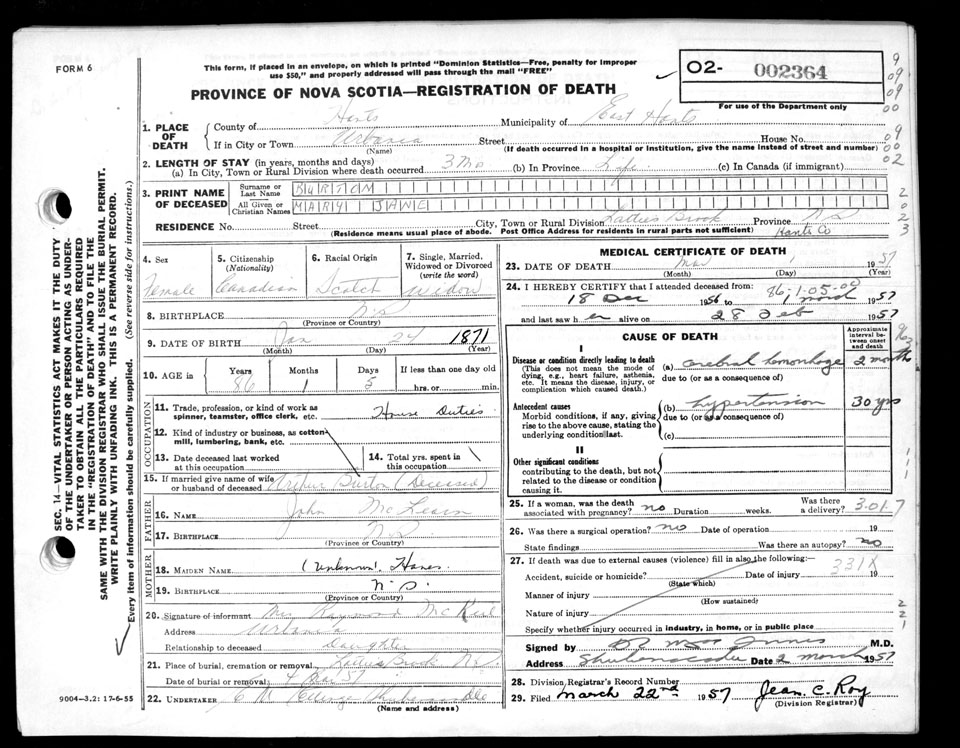 FORM 6
This form, if placed in an envelope, on which is printed "Dominion Statistics—Free, penalty for improper
use $50," and properly addressed will pass through the mail "FREE"
02- 002364
For use of the Department only
PROVINCE OF NOVA SCOTIA—REGISTRATION OF DEATH
1. PLACE OF DEATH
County of Hants Municipality of East Hants
If in City or Town Urbania Street House No.
(Name) (If death occurred in a hospital or institution, give the name instead of street and number)
2. LENGTH OF STAY (in years, months and days)
(a) In City, Town or Rural Division where death occurred 3 Mo (b) In Province Life (c) In Canada (if immigrant)
3. PRINT NAME OF DECEASED
Surname or Last Name BURTON
All Given or Christian Names MARY JANE
RESIDENCE No. Street City, Town or Rural Division Latties Brook Province N S
(Residence means usual place of abode. Post Office Address for residents in rural parts not sufficient) Hants Co
4. Sex
Female
5. Citizenship
(Nationality)
Canadian
6. Racial Origin
Scotch
7. Single, Married,
Widowed or Divorced
(write the word)
widow
8. BIRTHPLACE N.S
(Province or Country)
9. DATE OF BIRTH Jan 24 1871
(Month) (Day) (Year)
10. AGE in Years Months Days If less than one day old
86 1 5 hrs. or min.
OCCUPATION
11. Trade, profession, or kind of work as
spinner, teamster, office clerk, etc. House Duties
12. Kind of industry or business, as cotton-
mill, lumbering, bank, etc.
13. Date deceased last worked
at this occupation
14. Total yrs. spent in
this occupation
15. If married give name of wife
or husband of deceased Arthur Burton (Deceased)
FATHER
16. Name John McLearn
17. Birthplace N.S
(Province or Country)
MOTHER
18. MAIDEN NAME (Unknown)
19. BIRTHPLACE N.S.
(Province or Country)
20. Signature of informant Mrs Raymond
Address Urbania
Relationship to deceased Daughter
21. Place of burial, cremation or removal Latties Brook N.S.
Date of burial or removal 4 57
22. UNDERTAKER
(Name and address)
MEDICAL CERTIFICATE OF DEATH
23. DATE OF DEATH Mar 1 1957
(Month) (Day) (Year)
86-1-05-09
24. I HEREBY CERTIFY that I attended deceased from:
18 Dec 1956 to 1 March 1957
and last saw her alive on 28 Feb 1957
CAUSE OF DEATH
Approximate
interval be-
tween onset
and death
I
Disease or condition directly leading to death
(This does not mean the mode of
dying, e.g., heart failure, asthenia,
etc. It means the disease, injury, or
complication which caused death.)
(a) cerebral hemorrhage 2 months
due to (or as a consequence of)
Antecedent causes
Morbid conditions, if any, giving
rise to the above cause, stating the
underlying condition last.
(b) hypertension 30 yrs
due to (or as a consequence of)
(c)
II
Other significant conditions
contributing to the death, but not
related to the disease or condition
causing it.
25. If a woman, was the death
associated with pregnancy? no Duration weeks. Was there
a delivery? 3017
26. Was there a surgical operation? no Date of operation 19
State findings Was there an autopsy? no
27. If death was due to external causes (violence) fill in also the following:
331X
Accident, suicide or homicide? Date of injury 19
(State which)
Manner of injury
(How sustained)
Nature of injury
Specify whether injury occurred in industry, in home, or in public place
Signed by M.D.
Address Shubenacadie Date 2 March 1957
28. Division Registrar's Record Number
29. Filed March 22nd 1957 Jean C. Roy
(Division Registrar)
SEC. 14—VITAL STATISTICS ACT MAKES IT THE DUTY
OF THE UNDERTAKER OR PERSON ACTING AS UNDER-
TAKER TO OBTAIN ALL THE PARTICULARS REQUIRED
IN THE "REGISTRATION OF DEATH" AND TO FILE THE
SAME WITH THE DIVISION REGISTRAR WHO SHALL ISSUE THE BURIAL PERMIT.
WRITE PLAINLY WITH UNFADING INK. THIS IS A PERMANENT RECORD.
Every item of information should be carefully supplied. (See reverse side for instructions.)
9004—3.2: 17-6-55